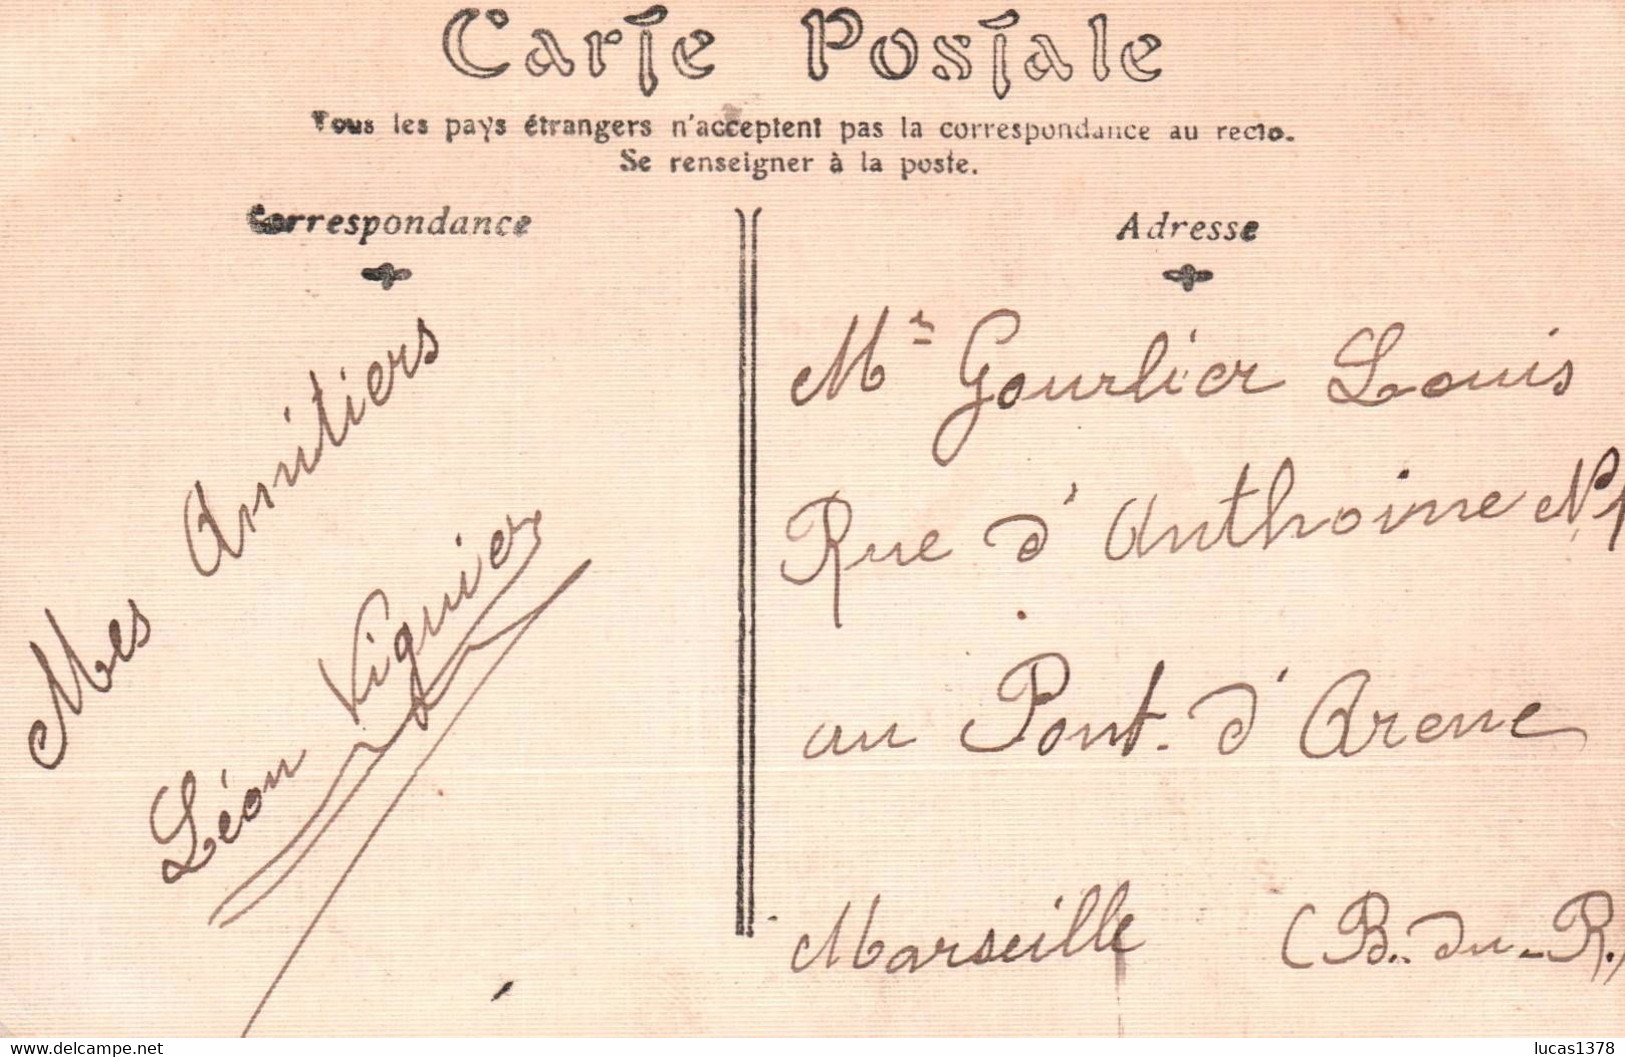 Carte Postale
Tous les pays étrangers n'acceptent pas la correspondance au recto.
Se renseigner à la poste.
Correspondance
Mes Amitiers
Léon Viguier
Adresse
Mr Gourlier Louis
Rue d'Anthoine N 1
au Pont. d'Arenc
Marseille (B.. du - R.)
www.delcampe.net
lucas1378